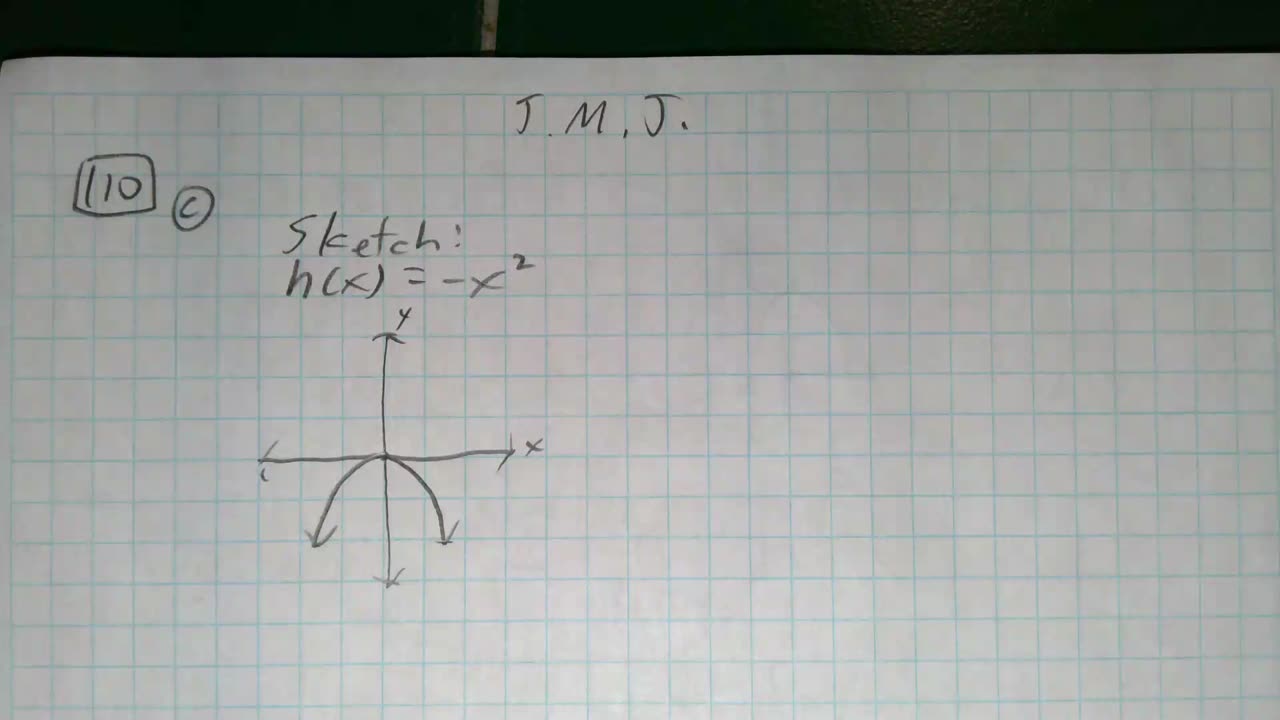 J.M.J.
110 c
Sketch:
h(x) = -x²
y
x